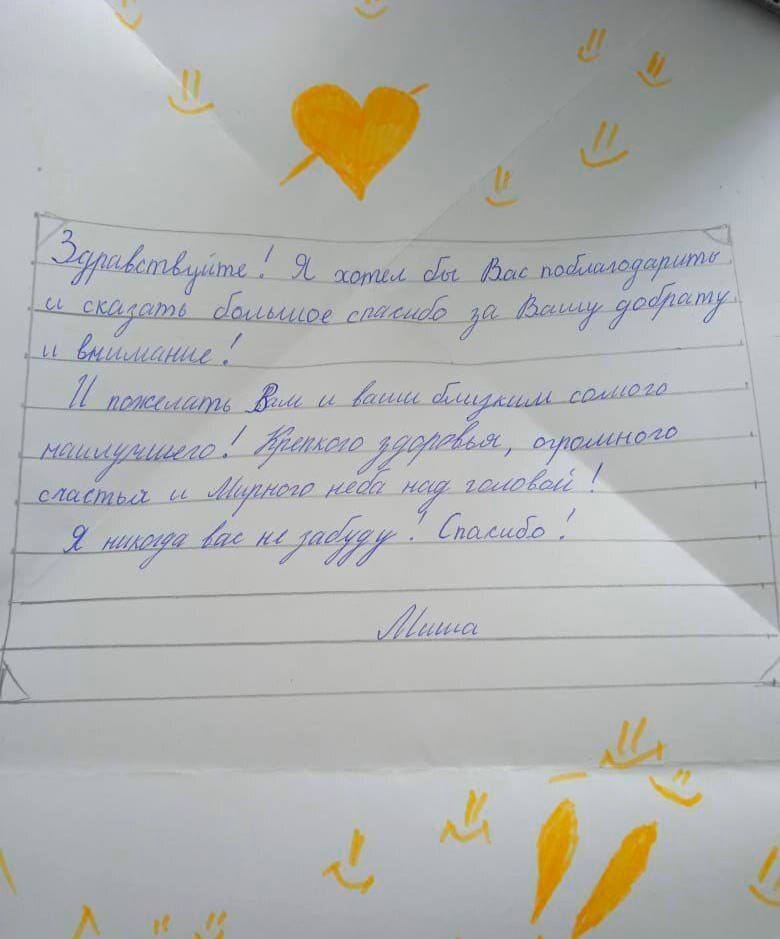 Здравствуйте! Я хотел бы Вас поблагодарить
и сказать большое спасибо за Вашу добрату
и внимание!
И пожелать Вам и ваши близким самого
наилучшего! Крепкого здоровья, огромного
счастья и Мирного неба над головой!
Я никогда вас не забуду! Спасибо!
Миша